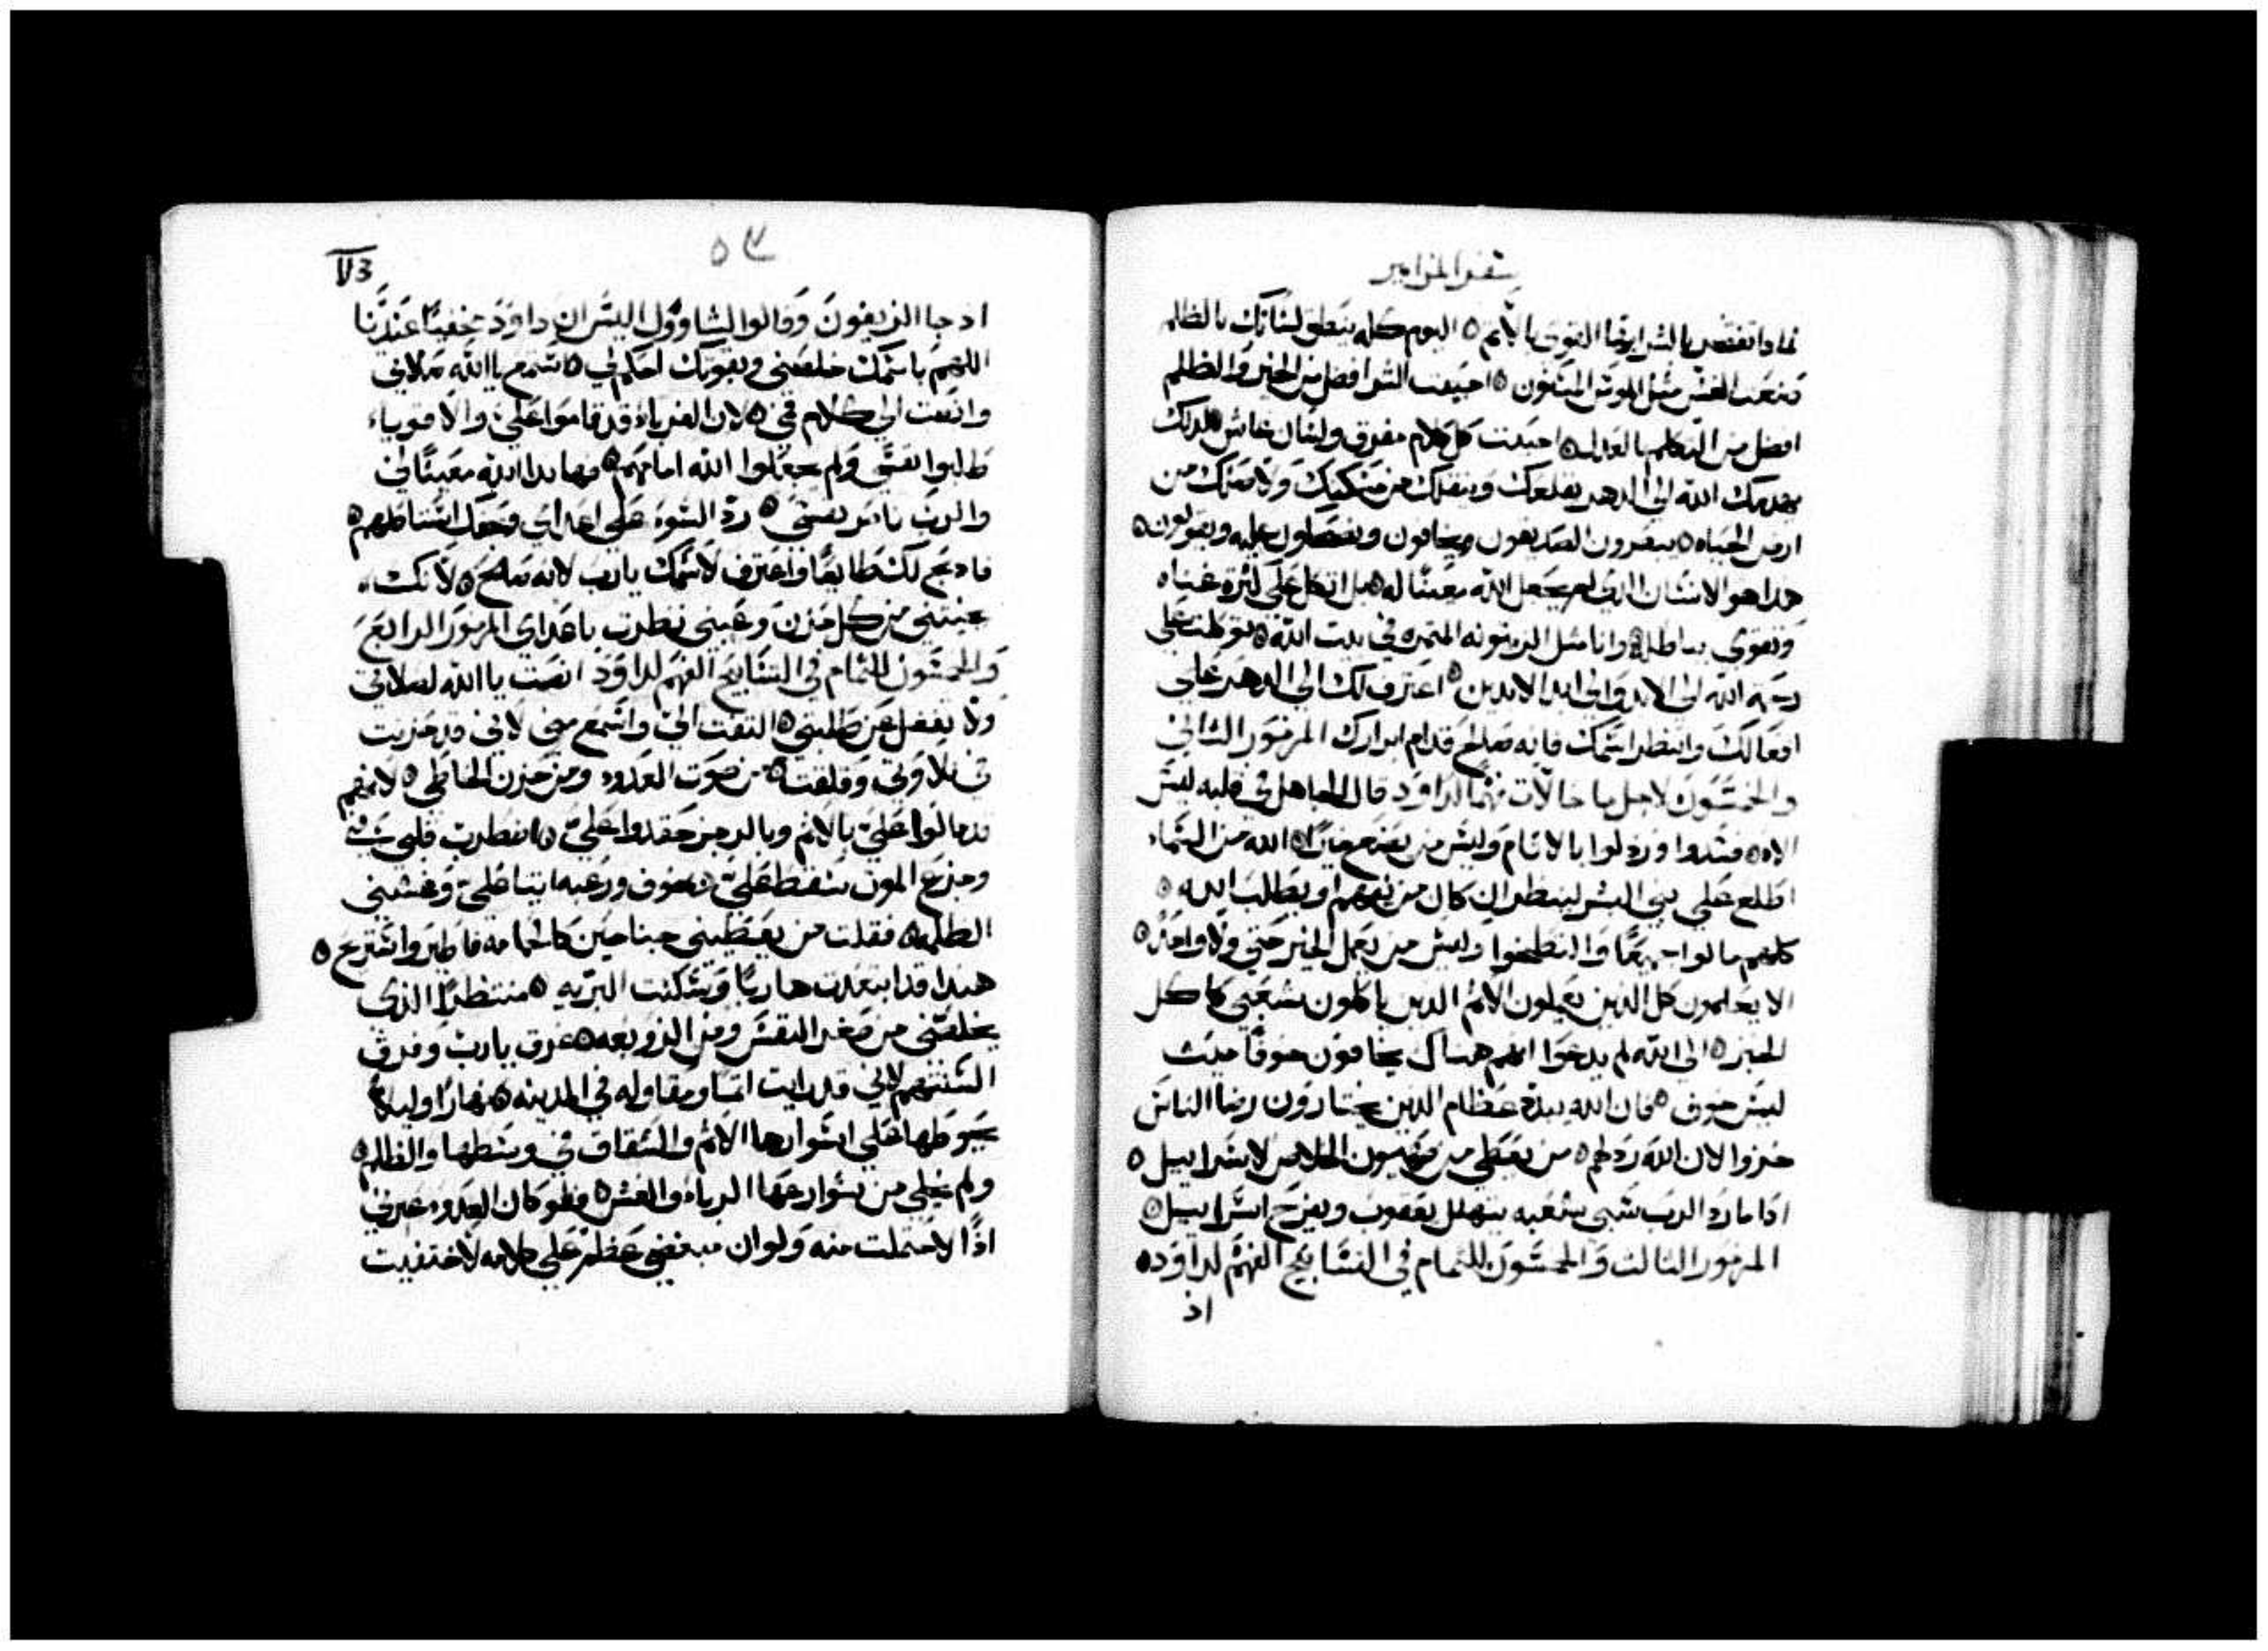 سفر المزامير
لماذا تفتخر بالشر ايها القوي بالاثم ٥ اليوم كله ينطق لسانك بالظلم
صنعت الغش مثل الموس المسنون ٥ احببت الشر افضل من الخير والظلم
افضل من التكلم بالعداله ٥ احببت كل كلام مغرق ولسان غاش ٥ لذلك
يهدمك الله الى الدهر يقلعك وينقلك من مسكنك ولاصلك من
ارض الحياه ٥ يبصرون الصديقون ويخافون ويضحكون عليه ويقولون ٥
هذا هو الانسان الذي لم يجعل الله معينا له ٥ بل اتكل على كثرة غناه
وتقوى بباطله ٥ وانا مثل الزيتونه المثمره في بيت الله ٥ توكلت على
رحمة الله الى الابد والى ابد الابدين ٥ اعترف لك الى الدهر على
افعالك وانتظر اسمك فانه صالح قدام ابرارك المزمور الثاني
والخمسون لاجل ماحالات فهما لداود قال الجاهل في قلبه ليس
الاه ٥ فسدوا ورذلوا بالاثام وليس من يصنع خيرا ٥ الله من السماء
اطلع على بني البشر لينظر ان كان من يفهم او يطلب الله ٥
كلهم مالوا جميعا والتطخوا وليس من يعمل الخير حتى ولا واحد ٥
الا يعلمون كل الذين يعملون الاثم الذين ياكلون شعبي كاكل
الخبز ٥ الى الله لم يدعوا انهم هناك يخافون خوفا حيث
ليس خوف ٥ فان الله يبدد عظام الذين يختارون رضا الناس
خزوا لان الله رذلهم ٥ من يعطي من صهيون الخلاص لاسراييل ٥
اذا ما رد الرب سبي شعبه يتهلل يعقوب ويفرح اسراييل ٥
المزمور الثالث والخمسون للتمام في التسابيح الفهم لداود ٥
اذ
٥٣
اذ جا الزيفون وقالوا لشاوول اليس ان داود مخفيا عندنا
اللهم باسمك خلصني وبقوتك احكم لي ٥ اسمع يا الله صلاتي
وانصت الى كلام فمي ٥ لان الغرباء قد قاموا علي والاقوياء
طلبوا نفسي ولم يجعلوا الله امامهم ٥ فهاهذا الله معينا لي
والرب ناصر نفسي ٥ رد السوء على اعداي وبحقك استاصلهم ٥
فاذبح لك طايعا واعترف لاسمك يارب لانه صالح ٥ لانك
نجيتني من كل حزن وعيني نظرت باعداي المزمور الرابع
والخمسون للتمام في التسابيح الفهم لداود انصت يا الله لصلاتي
ولا تغفل عن طلبتي ٥ التفت الي واسمع مني لاني قد حزنت
في بلاوتي وقلقت ٥ من صوت العدو ومن حزن الخاطي ٥ لانهم
قد مالوا علي بالاثم وبالرجز حقدوا علي ٥ اضطرب قلبي في
وجزع الموت سقط علي ٥ خوف ورعبه اتيا علي وغشيني
الظلمه ٥ فقلت من يعطيني جناحين كالحمامه فاطير واستريح ٥
هنذا قد ابتعدت هاربا وسكنت البريه ٥ منتظرا الذي
يخلصني من صغر النفس ومن الزوبعه ٥ غرق يارب وفرق
السنتهم لاني قد رايت اثما ومقاوله في المدينه ٥ نهارا وليلا
يحوطها على اسوارها الاثم والشقاق في وسطها والظلم ٥
ولم يخلي من شوارعها الرباء والغش ٥ فلو كان العدو عيرني
اذا لاحتملت منه ولو ان مبغضي عظم علي كلامه لاختفيت